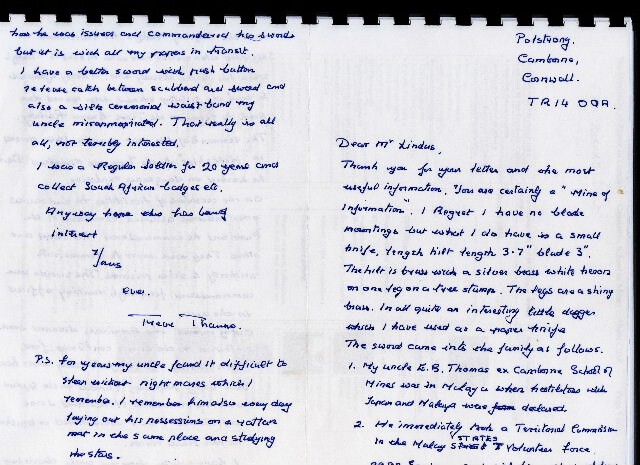 has he was issued and commandered his sword
but it is with all my papers in transit.
I have a better sword with push button
release catch between scabbard and sword and
also a silk ceremonial waist band my
uncle misappropriated. That really is all
all, not terribly interested.
I was a Regular Soldier for 20 years and
collect South African badges etc.
Anyway hope this has being
interest
Yours
ever.
Thomas.
P.S. for years my uncle found it difficult to
sleep without nightmares which I
remember. I remember him also every day
laying out his possessions on a rattan
mat in the same place and studying
the stars.
Polstrong.
Camborne,
Cornwall.
TR14 0QA.
Dear Mr Lindus,
Thank you for your letter and the most
useful information, "You are certainly a "Mine of
Information". I Regret I have no blade
mountings but what I do have is a small
knife, length hilt length 3.7" blade 3".
The hilt is brass with a silver brass white heron
on one leg on a tree stump. The legs are a shiny
brass. In all quite an interesting little dagger
which I have used as a paper knife
The sword came into the family as follows.
1. My uncle E.B. Thomas ex Camborne School of
Mines was in Malaya when hostilities with
Japan and Malaya were declared
2. He immediately took a Territorial Commission
in the Malay STATES Volunteer force.